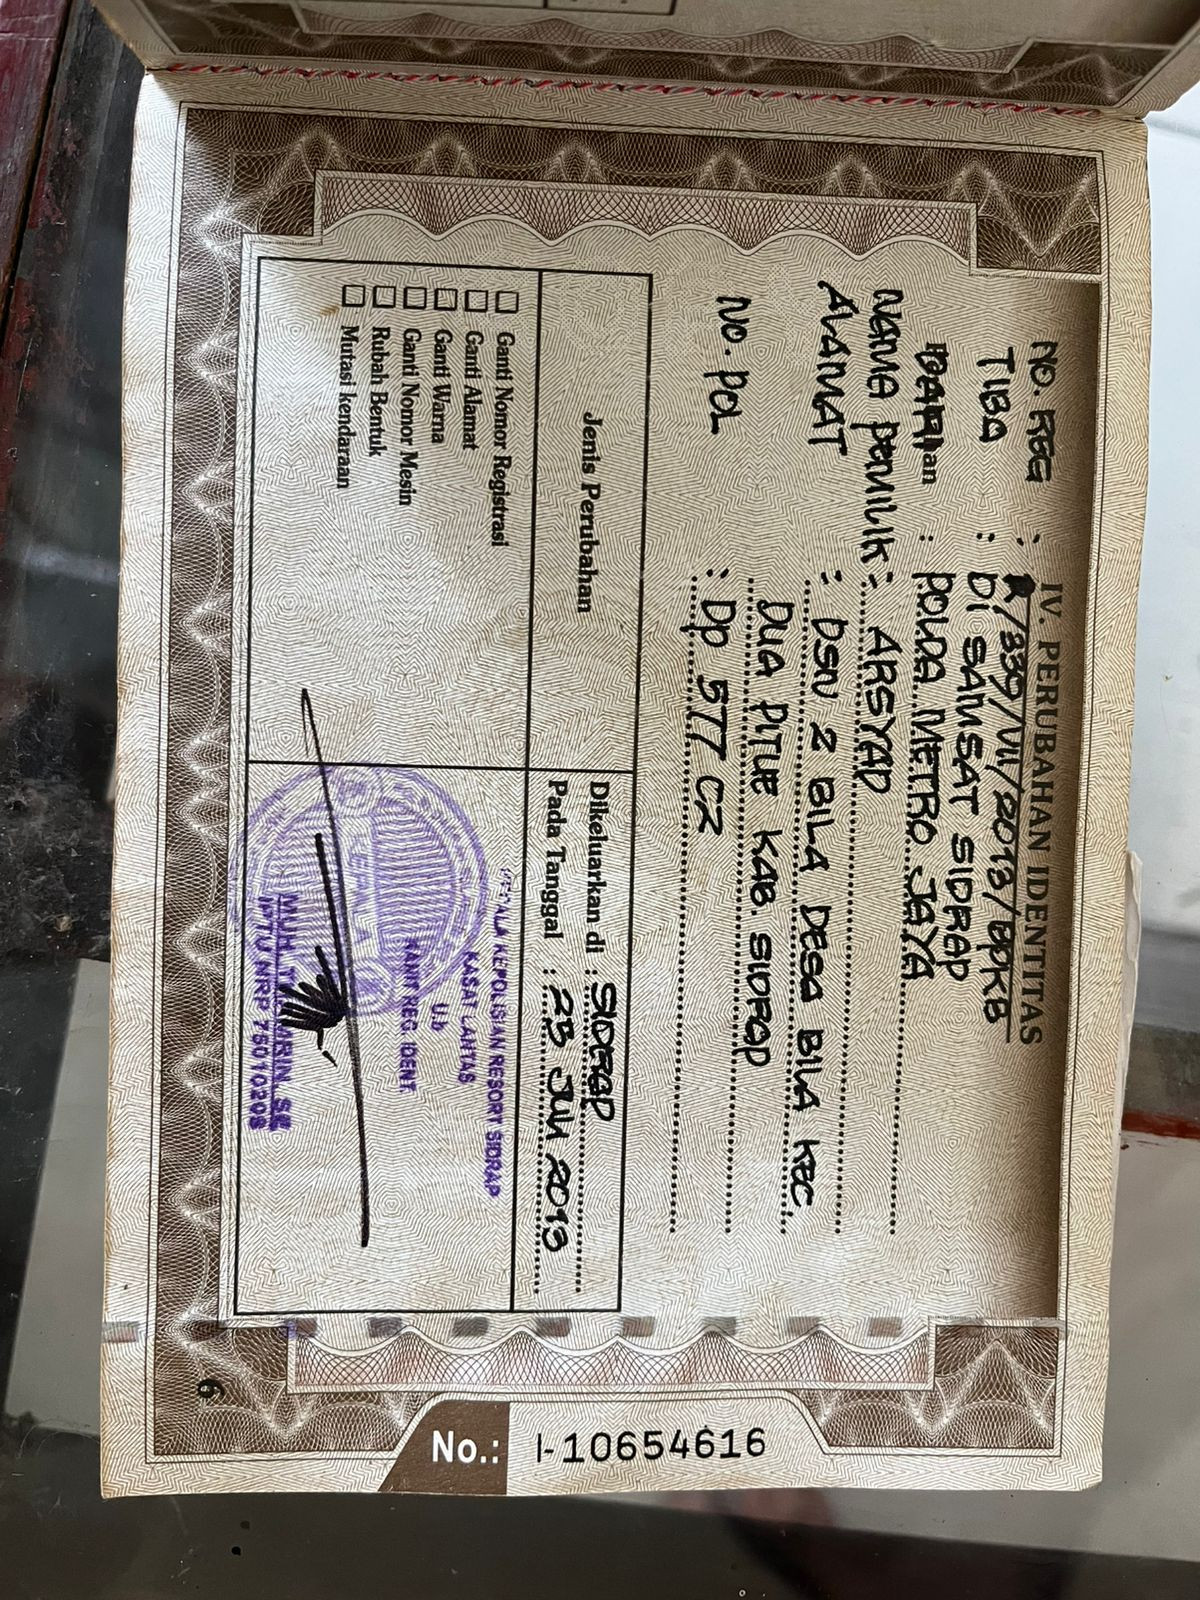 IV. PERUBAHAN IDENTITAS
NO. REG : /339/VII/2013/BPKB
TIBA : DI SAMSAT SIDRAP
DARI : POLDA METRO JAYA
NAMA PEMILIK : ARSYAD
ALAMAT : DSN 2 BILA DESA BILA KEC.
DUA PITUE KAB. SIDRAP
NO. POL : DP 577 CZ
Jenis Perubahan
Ganti Nomor Registrasi
Ganti Alamat
Ganti Warna
Ganti Nomor Mesin
Rubah Bentuk
Mutasi kendaraan
Dikeluarkan di : SIDRAP
Pada Tanggal : 23 JULI 2013
KEPALA KEPOLISIAN RESORT SIDRAP
KASAT LANTAS
U.b
KANIT REG IDENT
KEPALA
MUH. SE
IPTU NRP 75010208
6
No.: I-10654616